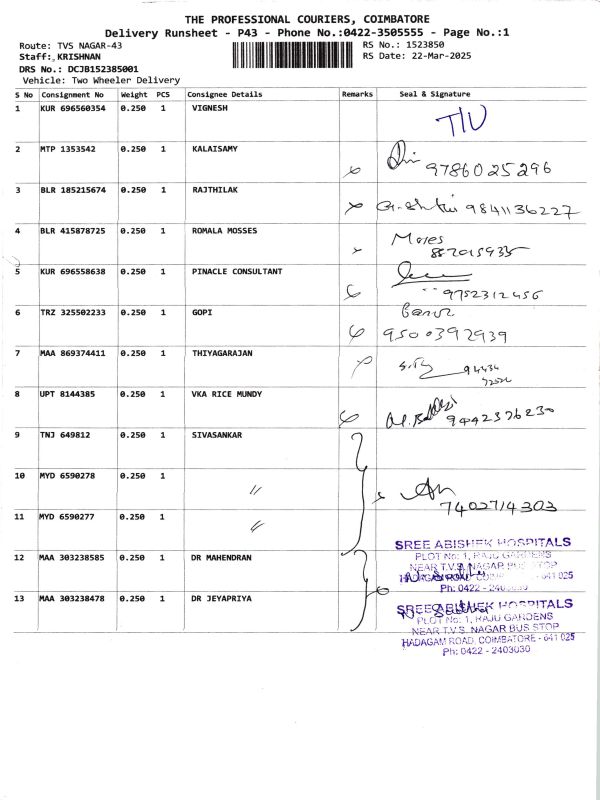 THE PROFESSIONAL COURIERS, COIMBATORE
Delivery Runsheet - P43 - Phone No.:0422-3505555 - Page No.:1
Route: TVS NAGAR-43
RS No.: 1523850
Staff: KRISHNAN
RS Date: 22-Mar-2025
DRS No.: DCJB152385001
Vehicle: Two Wheeler Delivery
S No Consignment No Weight PCS Consignee Details Remarks Seal & Signature
1 KUR 696560354 0.250 1 VIGNESH
2 MTP 1353542 0.250 1 KALAISAMY 9786025296
3 BLR 185215674 0.250 1 RAJTHILAK 9841136227
4 BLR 415878725 0.250 1 ROMALA MOSSES Moses
5 KUR 696558638 0.250 1 PINACLE CONSULTANT 9752312456
6 TRZ 325502233 0.250 1 GOPI 9500392939
7 MAA 869374411 0.250 1 THIYAGARAJAN
8 UPT 8144385 0.250 1 VKA RICE MUNDY 9442376230
9 TNJ 649812 0.250 1 SIVASANKAR
10 MYD 6590278 0.250 1 〃 7402714303
11 MYD 6590277 0.250 1 〃
12 MAA 303238585 0.250 1 DR MAHENDRAN
SREE ABISHEK HOSPITALS
PLOT No: 1, RAJU GARDENS
NEAR T.V.S. NAGAR BUS STOP
HADAGAM ROAD, COIMBATORE - 641 025
Ph: 0422 - 2403030
13 MAA 303238478 0.250 1 DR JEYAPRIYA
SREE ABISHEK HOSPITALS
PLOT No: 1, RAJU GARDENS
NEAR T.V.S. NAGAR BUS STOP
HADAGAM ROAD, COIMBATORE - 641 025
Ph: 0422 - 2403030